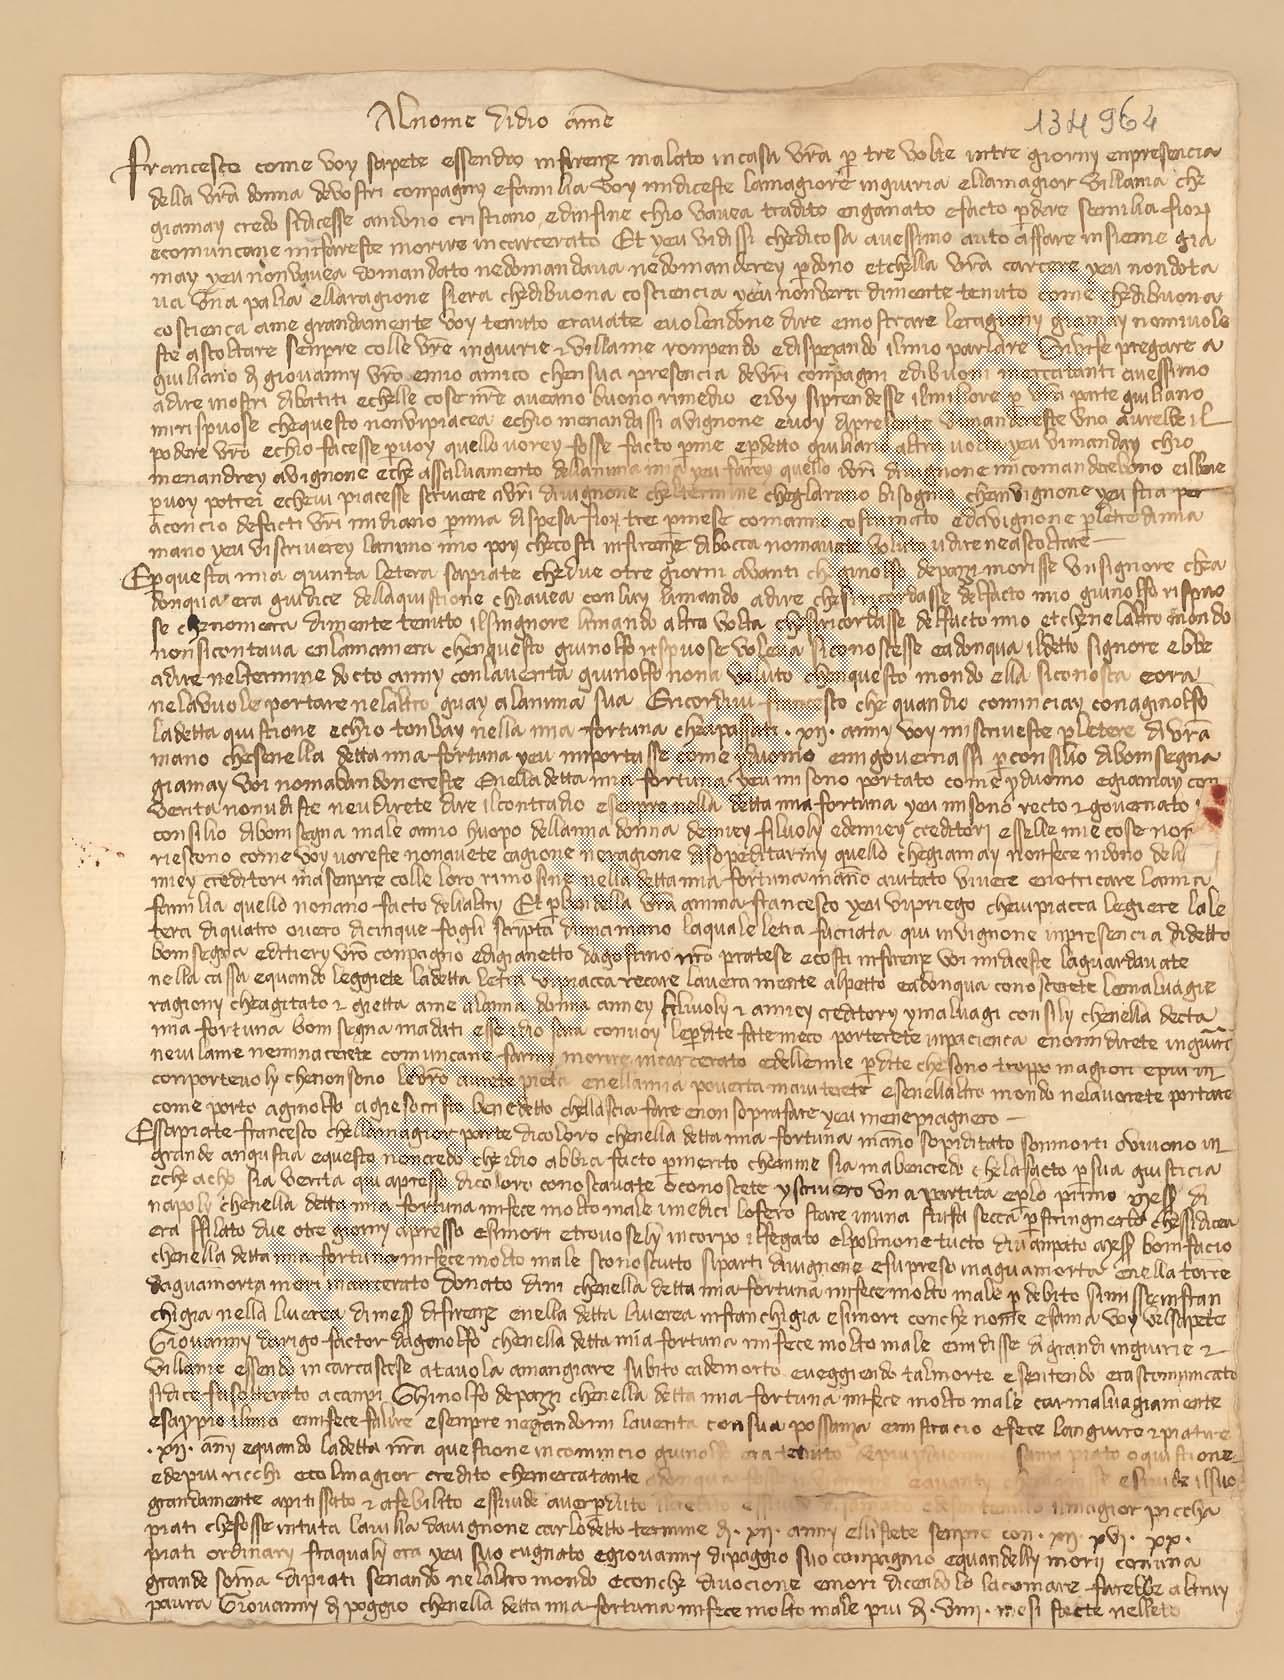 Al nome didio ame
134964
Francesco come voy sapete essendo infirenze malato in casa vra p tre volte intre giorny enpresencia
della vra donna devostri conpagny e familia voy mi diceste lamagiore inguiria ellamagior villania che
giamay credo sidicesse anduno cristiano edinfine chio vavea tradito enganato e facto pdere semilia fiory
ecomuncane mi fareste morire incarcerato Et yeu vi dissi chedicosa avessimo auto affare insieme gia
may yeu nonvavea domandato nedomandava nedomanderey pdono etchella vra carcere yeu nondota
va una palia ellaragione siera chedibuona cosciencia yeu nonvera dimente tenuto come chedibuona
coscienca ame grandamente voy tenuto eravate evolendone dire emostrare leragiony giamay nomivole
ste ascoltare senpre colle vre inguirie & villanie rompendo edisperando ilmio parlare Di vise pregare a
guiliano d giovanny vro emio amico chensua presencia devri compagni edibuoni mercatanti avessimo
adire inostri dibatiti echelle cose nre aveano buono rimedio eivy siprendesse ilmilore p vra parte guiliano
mirispuose chequesto nonvipiacea echio menandassi avignione evoy apresso vimandereste uno avrebbe il
podere vro echio facesse pvoy quello vorey fosse facto pme epdetto guiliano altra volta yeu vimanday chio
menandrey avignone eche assalvamento dellanima mia yeu farey quello vri davignone micomanderebono eilbene
pvoy potrei echevi piacesse scrivere avri davignone cheltermine cheglarano bisogno chenvignone yeu stia per
aconcio defacti vri midiano pmia dispesa fiory tre pmese comanno costumato edavignone pletre dimia
mano yeu viscriverey lanimo mio poy checosti infirenze dibocca nomavate voluto udire neascoltare
Epquesta mia quinta letera sapiate chedue otre giorni avanti che guinolfo depazzi morisse unsignore chea
donqua era giudice dellaquistione chiavea conluy lamando adire chesiricordasse delfacto mio guinolfo rispuo
se chenomera dimente tenuto ilsingnore limando altra volta chesiricordasse delfacto mio etchenelaltro mondo
nonsicontava enlamcamera chenquesto guinolfo rispuose voleva siconoscesse eadonqua ildetto signore ebbe
adire neltermine docto anny conlaverita guinolfo nona voluto chenquesto mondo ella siconosca eora
nelavuole portare nelaltro guay alanima sua Ericordivi francesco che quandio cominciay conaginolfo
ladetta quistione echio tonbay nella mia fortuna cheapassati .xij. anny voy miscriveste pletere di vra
mano chesenella detta mia fortuna yeu miportasse come yduomo emigovernassi pconsilio dibonisegna
giamay voi nomabandonereste Enella detta mia fortuna yeu misono portato come yduomo egiamay con
verita nonudiste neudirete dire ilcontradio esenpre nella detta mia fortuna yeu misono recto & governato
consilio dibonisegna male amio huopo dellamia donna demiey filuoly edemiey creditori esselle mie cose non
riescono come voy voreste nonavete cagione neragione disopeditarmy quello chegiamay nonfece niduno deli
miey creditori masenpre colle loro rimosine nella detta mia fortuna mano aiutato vivere enotricare lamia
familia quello nonano facto delialtry Et plben della vra anima francesco yeu vipriego chevipiacca legiere lale
tera diquatro overo dicinque fogli scripta dimiamano laquale letra facciata qui invignone inpresencia didetto
bonisegna editiery vro conpagno edigianetto dagostino nro pratese ecosti infirenze voi midiceste laguardavate
nella cassa equando leggiete ladetta letra vipiacca recare lavera mente alpetto eadonqua conoscerete lemalvagie
ragiony cheagitato & gietta ame alamia donna amiey filuoly & amiey creditory ymalvagi consily chenella decta
mia fortuna bonisegna madati esse dio fara convoy leperdite fatemeco porterete inpacienca enonmidirete inguirie
nevilanie neminacerete comuncane farmy morire incarcerato edellemie perdite chesono troppo magiori epiu in
conportevoly chenonsono levro avrete pieta enellamia poverta maiuterete esenellaltro mondo nelavorete portare
come porto aginolfo agiesocristo benedetto chellascia fare enon soprafare yeu menepiagnero
Essapiate francesco chellamagior parte dicoloro chenella detta mia fortuna mano sopiditato sonmorti oviveno in
grande angustia equesto noncredo cheidio abbia facto pmerito chemme sia mabencredo chelafacto psua giusticia
eche acho sia verita qui apresso dicoloro conosciavate oconoscete yscrivero una partita eplo primo mess di
napoly chenella detta mia fortuna mifece molto male imedici lofero stare inuna stufa secca pstringnerlo chessidicea
era ffilato due otre giorny apresso esimori etrovoseli incorpo ilfegato elpolmone tucto divanpato mess bonifacio
chenella detta mia fortuna mifece molto male sconosciuto siparti davignone efupreso inaguamorta enella torre
daguamorta mori incarcerato Donato dini chenella detta mia fortuna mifece molto male p debito simisse infran
chigia nella liverea dimess difirenze enella detta liverea infranchigia esimori conche nome efama voy velsapete
Giovanny darigo factor dagenolfo chenella detta mia fortuna mi fece molto male emidisse digrandi inguirie &
villanie essendo in carcascese atavola amangiare subito cademorto eveggiendo talmorte esentendo erascomunicato
sidice fusotterato acanpi Ghinolfo depazzi chenella detta mia fortuna mifece molto male carmalvagiamente
esapropio ilmio emifece falire esenpre negandomi laverita consua possanza emistracio efece languire & piatire
.xij. anny equando ladetta nra questione incomincio guinolfo era tenuto
edepiu ricchi ecolmagior credito chemercatante
grandamente apitissato & afebilito essivide averpduto ilmagior piccha
piati chefosse intuta lavila davignone carlodetto termine d .xij. anny ellistete senpre con .xij. xvj. xx.
piati ordinary fraqualy era yeu suo cugnato egiovanny dipoggio suo compagnio equandelly mory conuna
grande soma dipiati senando nelaltro mondo econche divocione emori dicendolo lacomare farebbe altruy
paura Giovanny d poggio chenella detta mia fortuna mifece molto male piu d .viiij. mesi stecte nelleto